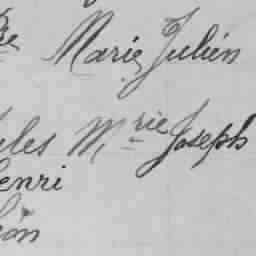 Marie Julien
Jules Mrie Joseph
Henri
Léon